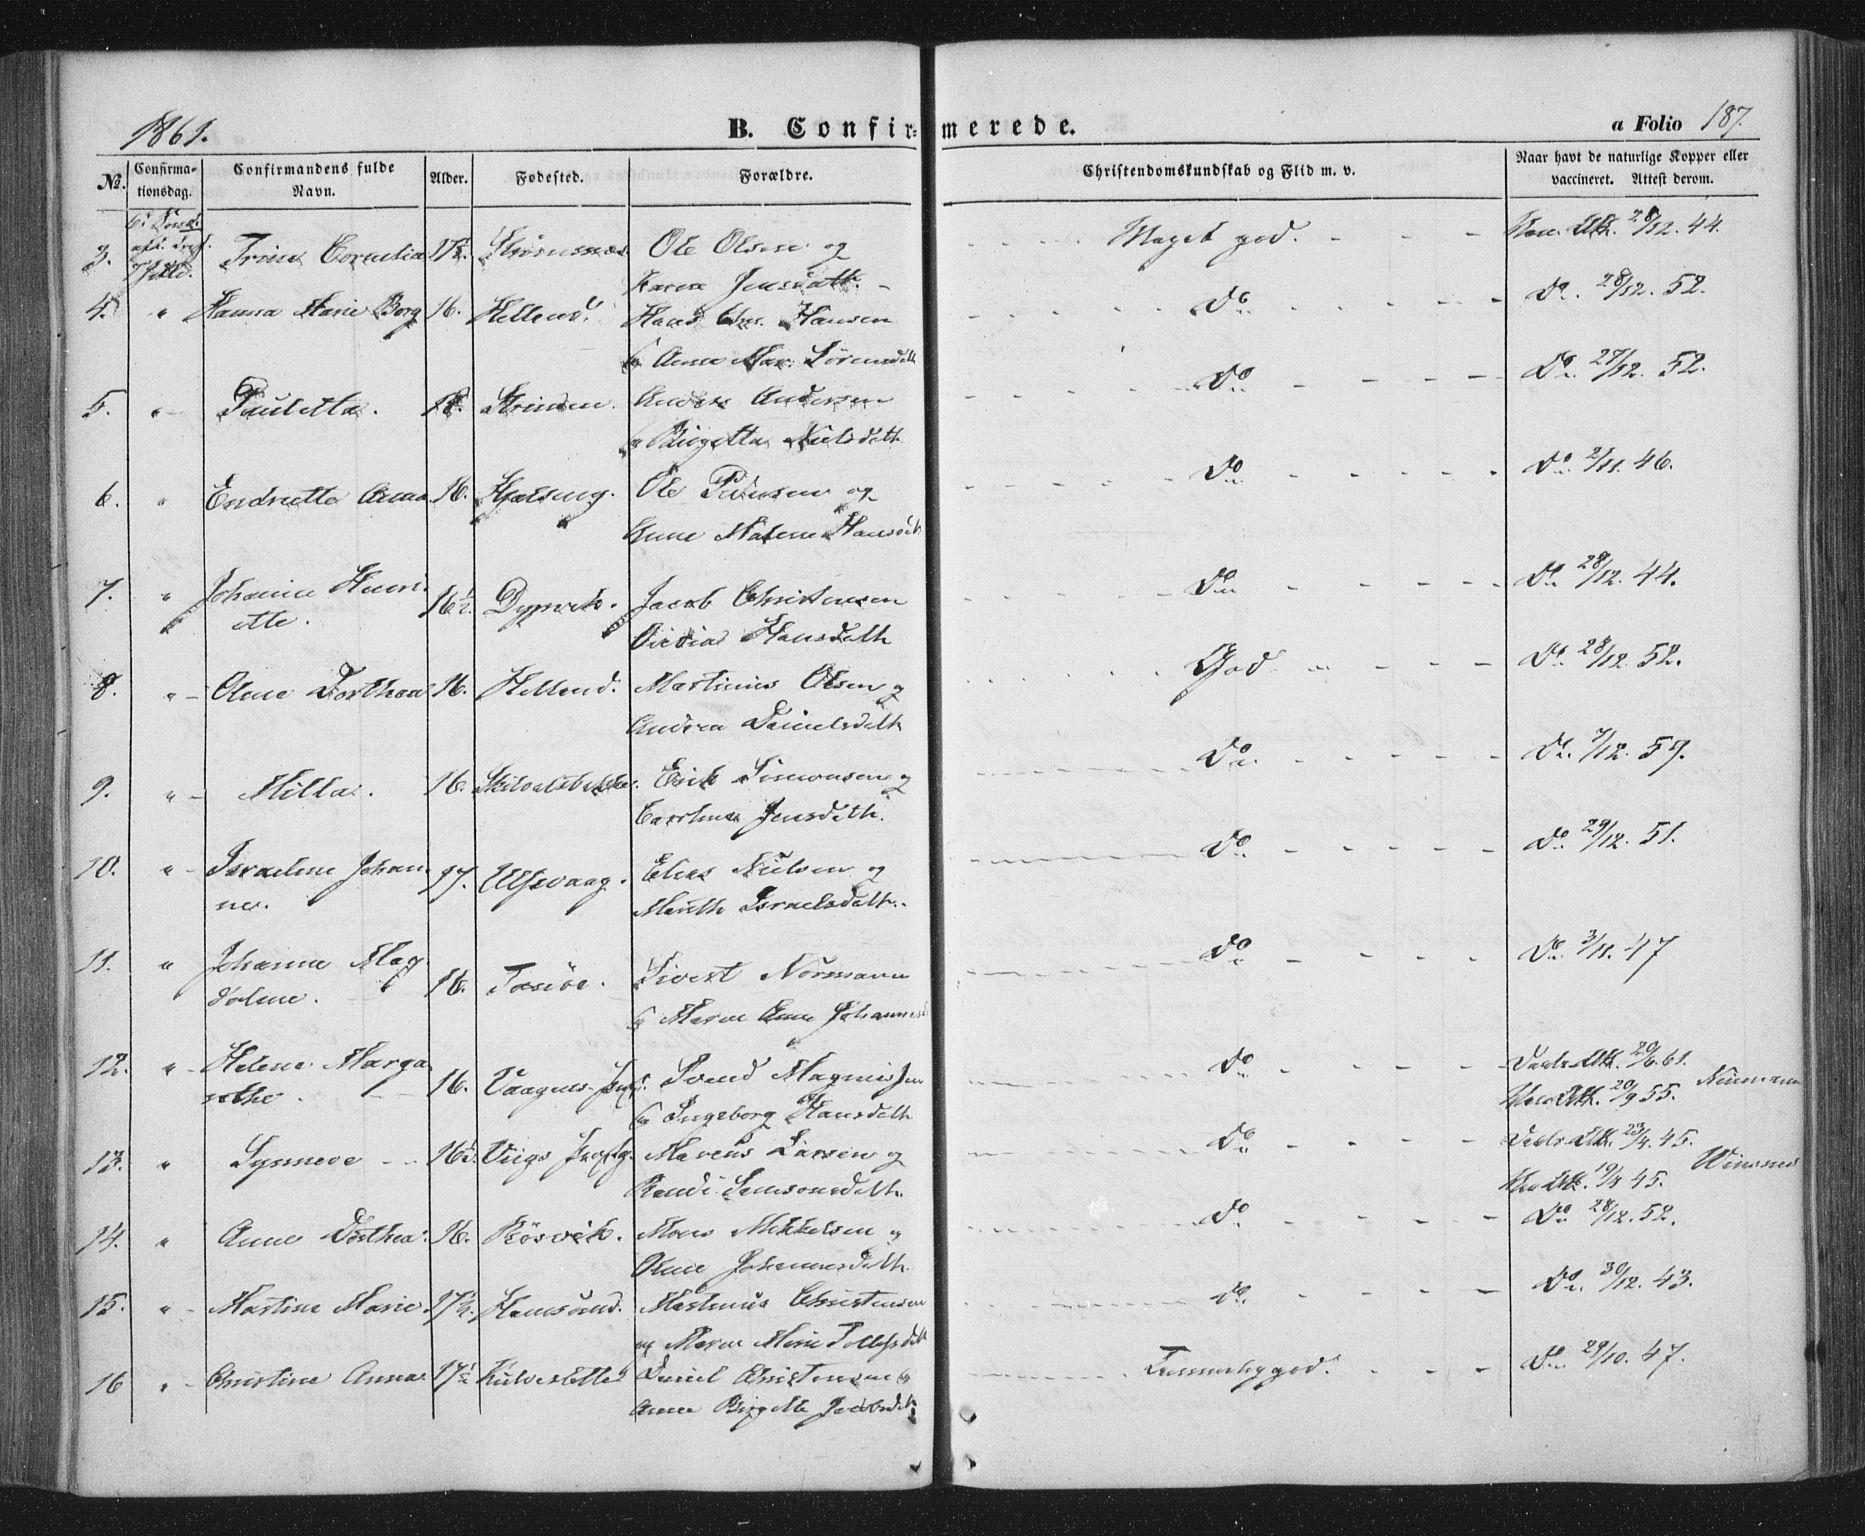 1861.
B. Confir=merede.
a Folio 187.
No.
Confirma-tionsdag.
Confirmandens fulde Navn.
Alder.
Fødested.
Forældre.
Christendomskundskab og Flid m. v.
Naar havt de naturlige Kopper eller vaccineret. Attest derom.
3. Trine Cornelia 17½ Ole Olsen og
Karen Jensdatt.
Meget god. 28/12. 44.
4. " Hanna Marie Borg 16. Helland. Hans Chr. Hansen
og Anna Mar. Sörensdatt
Do Do 28/12. 52.
5. " Pauletta. 18. Anders Andersen
og Birgitta Nielsdatt
Do Do 27/12. 52.
6. " Endrette Anna 16. Ole Pedersen og
Anne Malene Hansdatt
Do Do 2/11. 46.
7. " Johanna Henri
ette. 16½ Dypvik. Jacob Christensen
Hansdatth
Do Do 28/12. 44.
8. " Anne Dorthea 16. Helland. Martinus Olsen og
Andrea Danielsdatth
God Do 28/12. 52.
9. " Milla. 16. Erik Simonsen og
Jensdatth.
Do Do 7/12. 59.
10. " Israeline Johan
ne. 17. Ulfsvaag. Elias Nielsen og
Marith Israelsdatth.
Do Do 29/12. 51.
11. " Johanna Mag
dalene. 16. Tranöe. Sivert Normann
og Maren Anna Johannesd
Do Do 3/11. 47
12. " Helena Marga
rethe. 16. Svend Magnus
og Ingeborg Hansdatth
Do 20/6. 61. Neumann
20/9 55.
13. " Synneve 16½ Marcus Larsen og
Randi Samsonsdatth.
Do 23/4. 45. Winsnes
19/4 45.
14. " Anne Dorthea. 16. Rösvik. Mons Mikkelsen og
Johannesdatth.
Do Do 28/12. 52.
15. " Martine Marie 17½. Hamsund. Martinus Christensen
og Maren Marie Tollefsdatt
Do Do 30/12. 43.
16 " Christine Anna 17½ Daniel Christensen og
Anna Birgitte Jacobsdatt
Temmelig god. Do 29/10. 47.